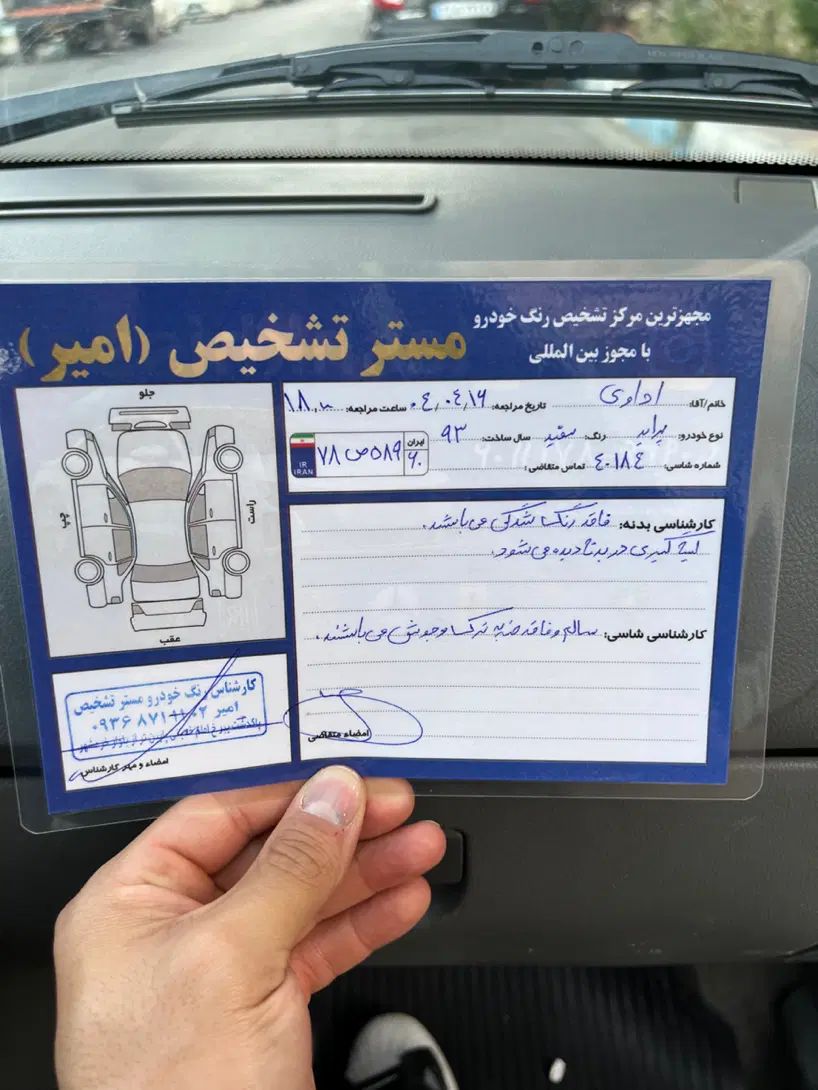 مجهزترین مرکز تشخیص رنگ خودرو
با مجوز بین المللی
مستر تشخیص (امیر)
خانم/آقا: اداوی تاریخ مراجعه: ۰۴,۰۴,۱۶ ساعت مراجعه: ۱۸,۰۰
نوع خودرو: پراید رنگ: سفید سال ساخت: ۹۳
ایران ۶۰ ۵۸۹ ص ۷۸
IR
IRAN
شماره شاسی: ۴۰۱۸۴ تماس متقاضی:
جلو
راست
چپ
عقب
کارشناسی بدنه: فاقد رنگ شدگی می باشد.
لیسه گیری در بدنه دیده می شود.
کارشناسی شاسی: سالم و فاقد ضربه ترک و جوش می باشند.
امضاء متقاضی
کارشناس رنگ خودرو مستر تشخیص
امیر ۰۹۳۶ ۸۷۱ ۱۱۰۲
پاکدشت
امضاء و مهر کارشناس